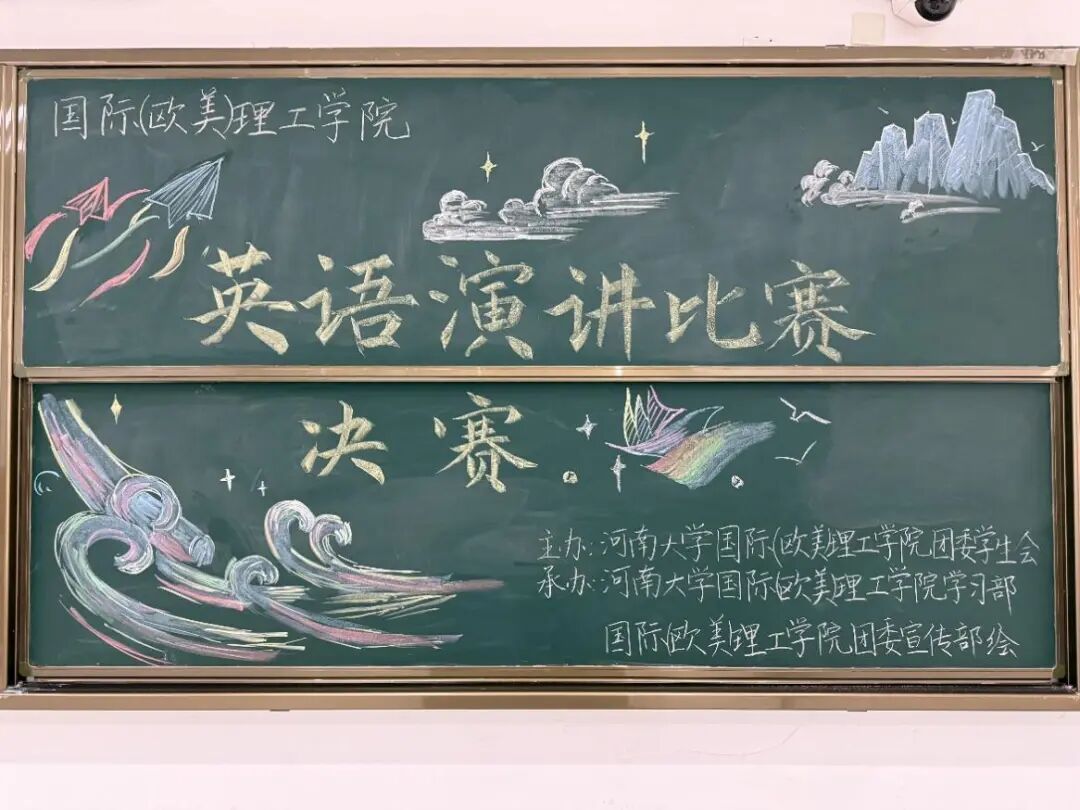 国际(欧美)理工学院
英语演讲比赛
决赛
主办:河南大学国际(欧美)理工学院团委学生会
承办:河南大学国际(欧美)理工学院学习部
国际(欧美)理工学院团委宣传部绘